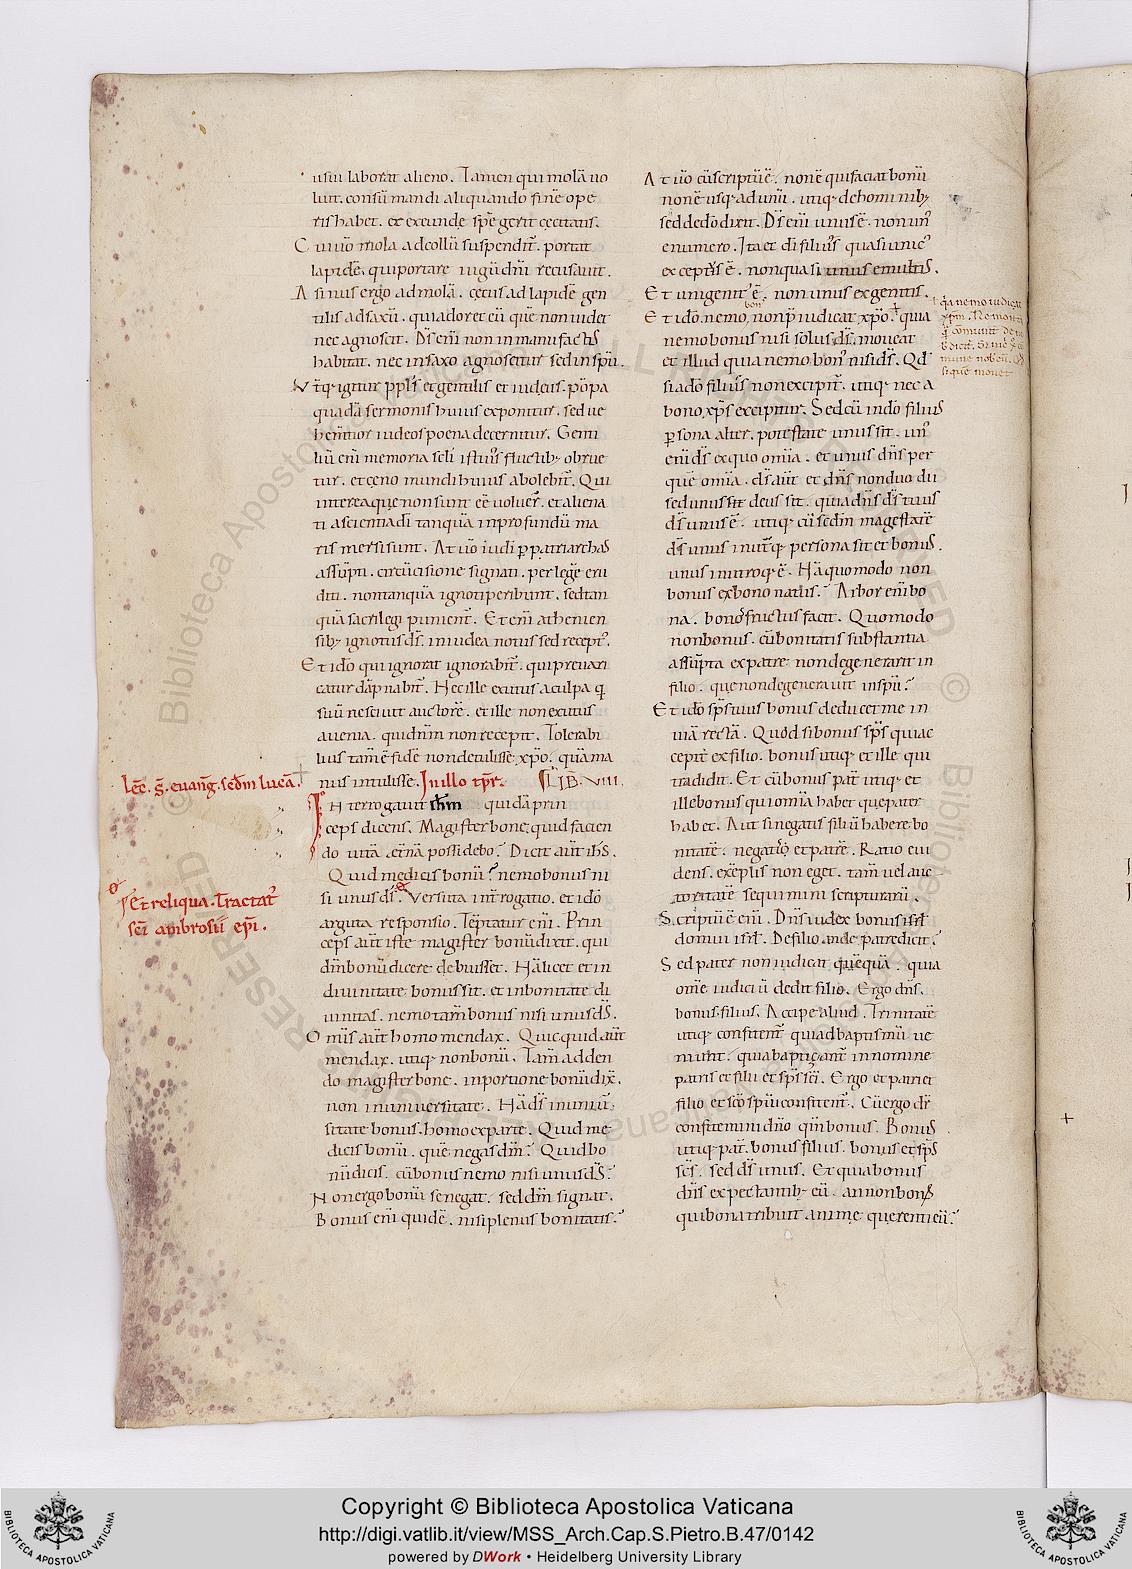 usui laborat alieno. Tamen qui molā uo
lutt. consūmandi aliquando finē ope
ris habet. et exeunde spē gerit cęcitatis.
Cui uo mola ad collū suspendit̄. portat
lapidē. qui portare iugū dn̄i recusauit.
Asinus ergo ad molā. cęcus ad lapidē gen
tilis ad saxū. qui adoret eū quē non uidet
nec agnoscit. Ds̄ eni͞ non in manufactis
habitat. nec in saxo agnoscitur sed in sp̄u.
Vt̄q; igitur ppl̄s et gentilis et iudeus. p̄opa
quadā sermonis huius exponitur. sed ue
hem̄tior iudeos poena decernitur. Genti
liū eni͞ memoria sc̄li istius fluctib; obrue
tur. et cęno mundi huius abolebit̄. Qui
inter ea que non sunt eē uoluer̄. et aliena
ti a scientia dī tanquā in profundū ma
ris mersi sunt. At uo iudī p patriarchas
assūpti. circūcisione signati. per legē eru
diti. non tanquā ignoti peribunt. sed tan
quā sacrilegi punient̄. Et eni͞ athenien
sib; ignotus ds̄. in iudea notus sed recept'.
Et ido qui ignorat ignorabit̄. qui preuari
catur dāpnabit̄. Hec ille exutus a culpa q̄
suū nesciuit auctorē. et ille non exutus
a uenia. qui dn̄m non recepit. Tolerabi
lius tam̄ ē fidē non detulisse xp̄o. quā ma
nus intulisse. In illo tp̄r. LIB. VIIII.
Interrogauit ih̄m quidā prin
ceps dicens. Magister bone. quid facien
do uitā ęt̄nā possidebo? Dicit aūt ih̄s.
Quid me dicis bonū? nemo bonus ni
si unus ds̄. Versuta int̄rogatio. et ido
arguta responsio. Tēptatur eni͞. Prin
ceps aūt iste magistēr bonū dixit. qui
dm̄ bonū dicere debuisset. Nā licet et in
diuinitate bonus sit. et in bonitate di
uinitas. nemo tam̄ bonus nisi unus ds̄.
Omīs aūt homo mendax. Quicquid aūt
mendax. utiq; non bonū. Tam̄ adden
do magister bone. in portione bonū dix̄.
non in uniuersitate. Nā ds̄ in uniū
sitate bonus. homo ex parte. Quid me
dicis bonū. quē negas dm̄? Quid bo
nū dicis. cū bonus nemo nisi unus ds̄?
Non ergo bonū se negat. sed dm̄ signat.
Bonus eni͞ quidē. nisi plenus bonitatis?
Lec̄. s̄. euang̅. sedm̄ lucā.
Et reliqua. Tractat'
sc̄i ambrosii ep̄i.
At uo cū scriptū ē. non ē qui faciat bonū
non ē usq; ad unū. utiq; de hominib;
sed de do dixit. Ds̄ eni͞ unus ē. non un'
e numero. Ita et dī filius quasi unic'
exceptus ē. non quasi unus e multis.
Et unigenit' ē. non unus ex genitis.
Et ido. nemo, non p̄ iudicat xp̄o. quia
nemo bonus nisi solus ds̄. moueat
et illud quia nemo bon' nisi ds̄. Qd̄
si a do filius non excipit̄. utiq; nec a
bono xp̄s excipitur. Sed cū in do filius
psona alter. potestate unus sit. un'
eni͞ ds̄ ex quo omīa. et unus dn̄s per
quē omīa. ds̄ aūt et dn̄s non duo dii
sed unus sit deus sit. quia dn̄s ds̄ tuus
ds̄ unus ē. utiq; cū sedm̄ magestatē
ds̄ unus in ut̄q; persona sit et bonus.
unus in utroq; ē. Nā quomodo non
bonus ex bono natus? Arbor eni͞ bo
na. bonos fructus facit. Quomodo
non bonus. cū bonitatis substantia
assūpta ex patre non degenerarit in
filio. quę non degenerauit in sp̄u?
Et ido sp̄s tuus bonus deducet me in
uiā rectā. Quod si bonus sp̄s qui ac
cepit ex filio. bonus utiq; et ille qui
tradidit. Et cū bonus pat̄ utiq; et
ille bonus qui omīa habet quę pater
habet. Aut si negatis filiū habere bo
nitatē. negat̄ et patrē. Ratio eui
dens. exēplis non eget. tam̄ uel auc
toritatē sequimini scripturarū.
Scriptū ē eni͞. Dn̄s iudex bonus isrl̄
domui isrl̄. De filio. an de patre dicit?
Sed pater non iudicat quēquā. quia
om̄e iudiciū dedit filio. Ergo dn̄s.
bonus filius. Accipe aliud. Trinitatē
utiq; confitent̄ qui ad baptismū ue
niunt. qui a baptizant̄ in nomine
patris et filii et sp̄s sc̄i. Ergo et patri et
filio et sc̄o sp̄ui confitent̄. Cū ergo dr̄
confitemini dn̄o qm̄ bonus. Bonus
utiq; pat̄. bonus filius. bonus et sp̄s
sc̄s. sed ds̄ unus. Et quia bonus
dn̄s expectantib; eū. an non bonus
qui bona tribuit animę querenti eū?
Copyright © Biblioteca Apostolica Vaticana
http://digi.vatlib.it/view/MSS_Arch.Cap.S.Pietro.B.47/0142
powered by DWork • Heidelberg University Library